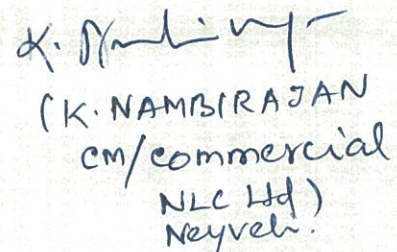 K. Nambirajan
(K. NAMBIRAJAN
CM/Commercial
NLC Ltd)
Neyveli.